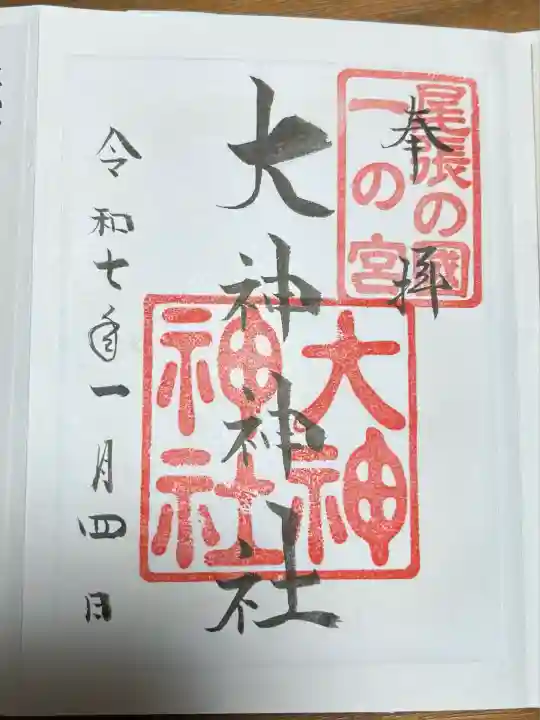 奉拝
尾張の國
一の宮
大神神社
大神
神社
令和七年一月四日